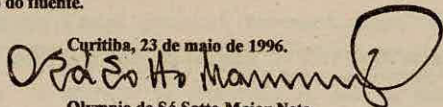 do fluente.
Curitiba, 23 de maio de 1996.
Olympio de Sá Sotto Maior Neto